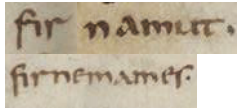 fir namut.
firnemames.